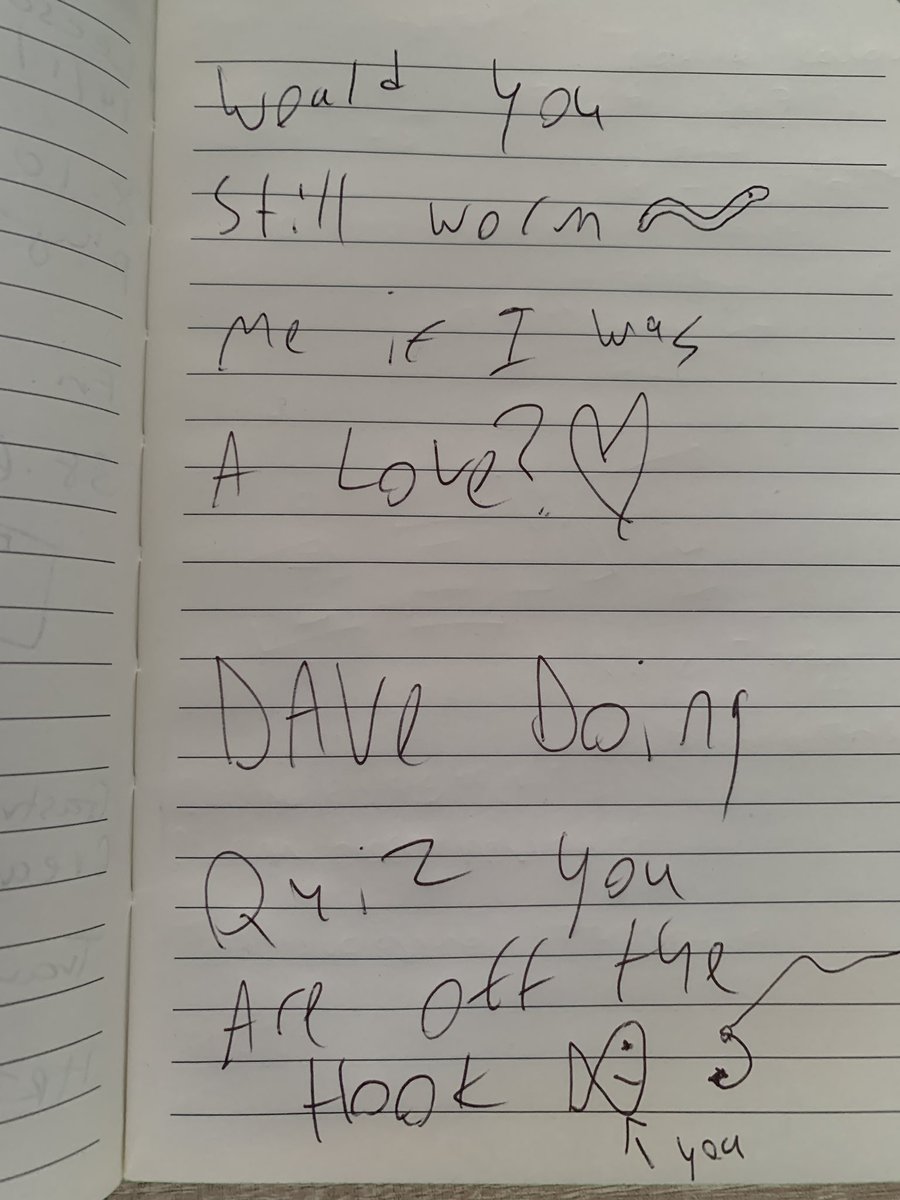 Would you
Still worm
Me if I was
A Love?
DAVe Doing
Quiz you
Are off the
Hook
you